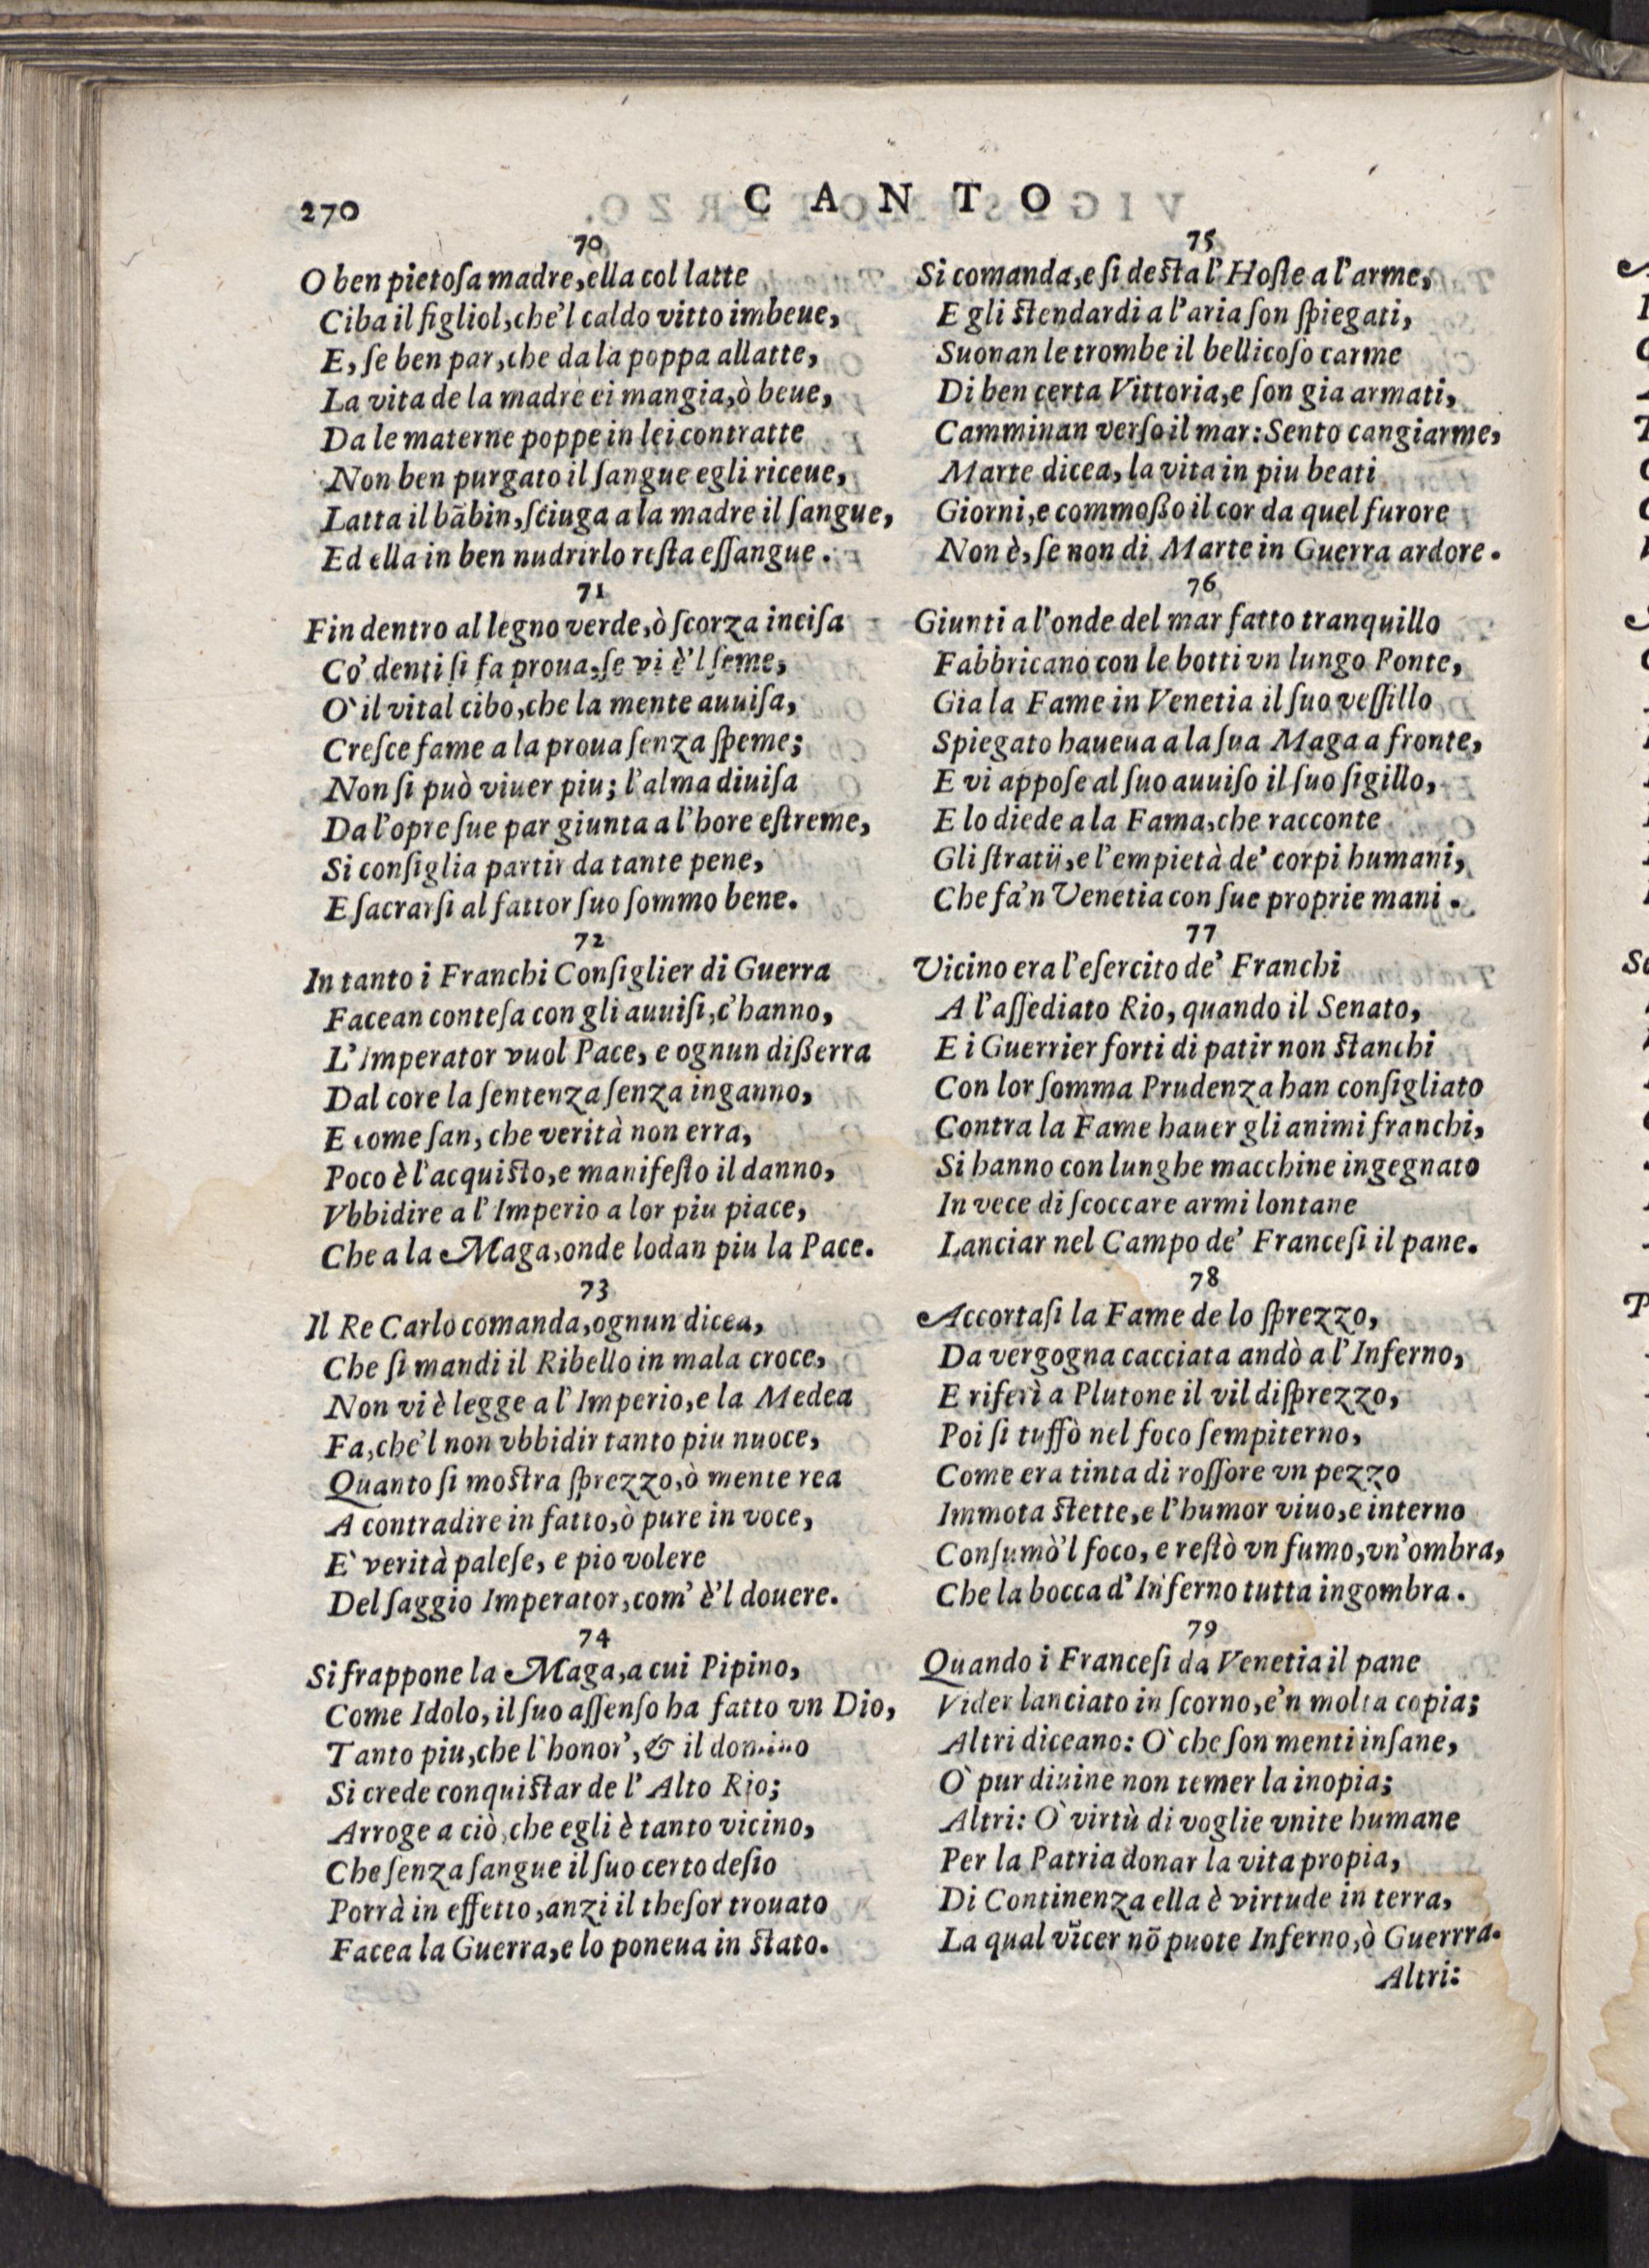 270
CANTO
70
O ben pietoſa madre, ella col latte
Ciba il figliol, che'l caldo vitto imbeue,
E, ſe ben par, che da la poppa allatte,
La vita de la madre ei mangia, ò beue,
Da le materne poppe in lei contratte
Non ben purgato il ſangue egli riceue,
Latta il bãbin, ſciuga a la madre il ſangue,
Ed ella in ben nudrirlo reſta eſſangue.
71
Fin dentro al legno verde, ò ſcorza inciſa
Co' denti ſi fa proua, ſe vi è'l ſeme,
O' il vital cibo, che la mente auuiſa,
Creſce fame a la proua ſenza ſpeme;
Non ſi può viuer piu; l'alma diuiſa
Da l'opre ſue par giunta a l'hore eſtreme,
Si conſiglia partir da tante pene,
E ſacrarſi al fattor ſuo ſommo bene.
72
In tanto i Franchi Conſiglier di Guerra
Facean conteſa con gli auuiſi, c'hanno,
L'Imperator vuol Pace, e ognun dißerra
Dal core la ſentenza ſenza inganno,
E come ſan, che verità non erra,
Poco è l'acquiſto, e manifeſto il danno,
Vbbidire a l'Imperio a lor piu piace,
Che a la Maga, onde lodan piu la Pace.
73
Il Re Carlo comanda, ognun dicea,
Che ſi mandi il Ribello in mala croce,
Non vi è legge a l'Imperio, e la Medea
Fa, che'l non vbbidir tanto piu nuoce,
Quanto ſi moſtra ſprezzo, ò mente rea
A contradire in fatto, ò pure in voce,
E' verità paleſe, e pio volere
Del ſaggio Imperator, com' è'l douere.
74
Si frappone la Maga, a cui Pipino,
Come Idolo, il ſuo aſſenſo ha fatto vn Dio,
Tanto piu, che l'honor', & il domino
Si crede conquiſtar de l'Alto Rio;
Arroge a ciò, che egli è tanto vicino,
Che ſenza ſangue il ſuo certo deſio
Porrà in effetto, anzi il theſor trouato
Facea la Guerra, e lo poneua in ſtato.
75
Si comanda, e ſi deſta l'Hoſte a l'arme,
E gli ſtendardi a l'aria ſon ſpiegati,
Suonan le trombe il bellicoſo carme
Di ben certa Vittoria, e ſon gia armati,
Camminan verſo il mar: Sento cangiarme,
Marte dicea, la vita in piu beati
Giorni, e commoßo il cor da quel furore
Non è, ſe non di Marte in Guerra ardore.
76
Giunti a l'onde del mar fatto tranquillo
Fabbricano con le botti vn lungo Ponte,
Gia la Fame in Venetia il ſuo veſſillo
Spiegato haueua a la ſua Maga a fronte,
E vi appoſe al ſuo auuiſo il ſuo ſigillo,
E lo diede a la Fama, che racconte
Gli ſtratij, e l'empietà de' corpi humani,
Che fà'n Venetia con ſue proprie mani.
77
Vicino era l'eſercito de' Franchi
A l'aſſediato Rio, quando il Senato,
E i Guerrier forti di patir non ſtanchi
Con lor ſomma Prudenza han conſigliato
Contra la Fame hauer gli animi franchi,
Si hanno con lunghe macchine ingegnato
In vece di ſcoccare armi lontane
Lanciar nel Campo de' Franceſi il pane.
78
Accortaſi la Fame de lo ſprezzo,
Da vergogna cacciata andò a l'Inferno,
E riferì a Plutone il vil diſprezzo,
Poi ſi tuffò nel foco ſempiterno,
Come era tinta di roſſore vn pezzo
Immota ſtette, e l'humor viuo, e interno
Conſumò'l foco, e reſtò vn fumo, vn'ombra,
Che la bocca d'Inferno tutta ingombra.
79
Quando i Franceſi da Venetia il pane
Vider lanciato in ſcorno, e'n molta copia;
Altri diceano: O' che ſon menti inſane,
O' pur diuine non temer la inopia;
Altri: O' virtù di voglie vnite humane
Per la Patria donar la vita propia,
Di Continenza ella è virtude in terra,
La qual vĩcer nõ puote Inferno, ò Guerrra.
Altri: